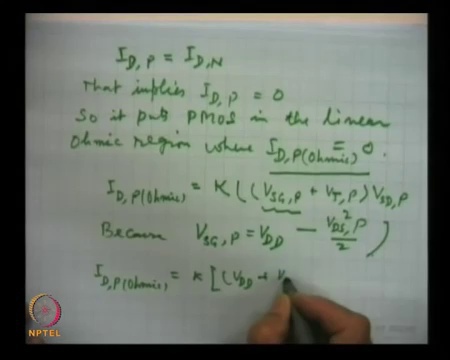 I_D,P = I_D,N
That implies I_D,P = 0
So it puts PMOS in the linear
Ohmic region where I_D,P(Ohmic) = 0.
I_D,P(Ohmic) = K((V_SG,P + V_T,P) V_SD,P
Because V_SG,P = V_DD - V_DS²,P/2)
I_D,P(Ohmic) = K[(V_DD + V
NPTEL